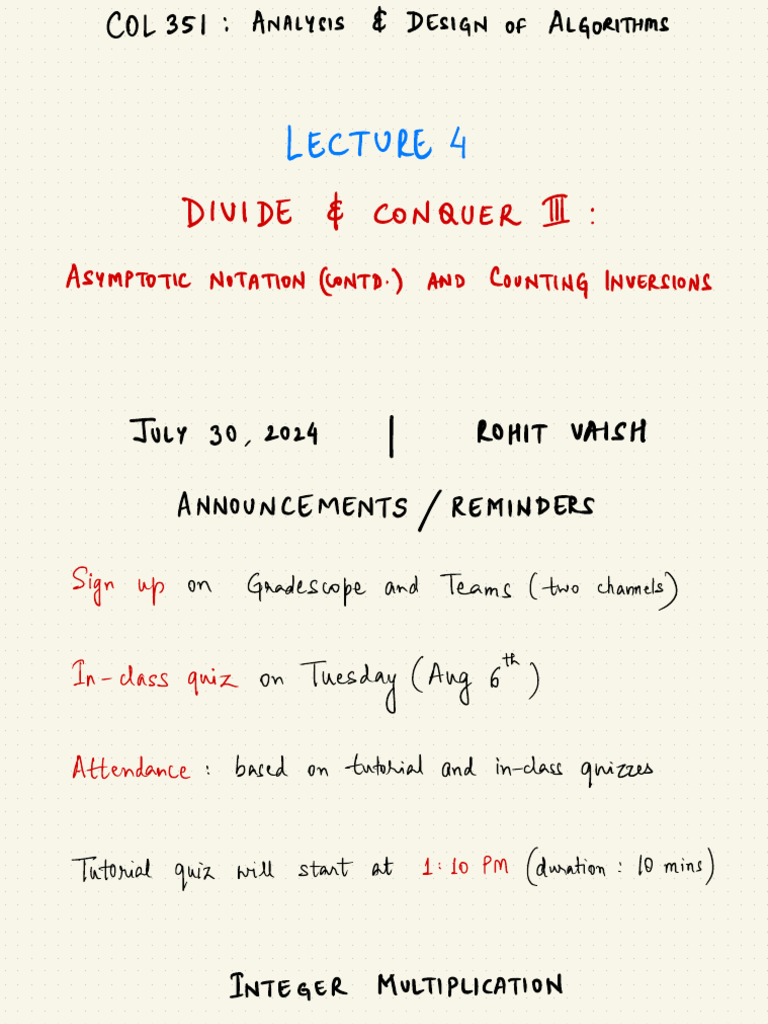 COL 351 : ANALYSIS & DESIGN OF ALGORITHMS
LECTURE 4
DIVIDE & CONQUER III :
ASYMPTOTIC NOTATION (CONTD.) AND COUNTING INVERSIONS
JULY 30, 2024 | ROHIT VAISH
ANNOUNCEMENTS / REMINDERS
Sign up on Gradescope and Teams (two channels)
In-class quiz on Tuesday (Aug 6th)
Attendance : based on tutorial and in-class quizzes
Tutorial quiz will start at 1:10 PM (duration : 10 mins)
INTEGER MULTIPLICATION